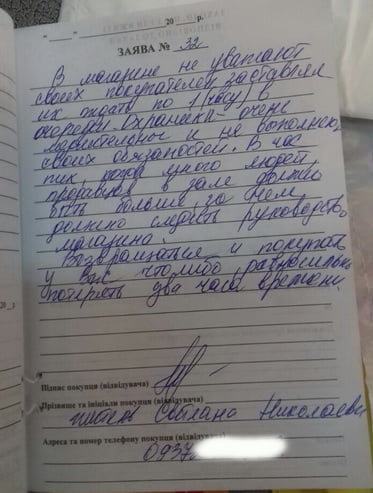 "___" ________ 20__ р.
ЗАЯВА № 32
В магазине не уважают
своих покупателей заставляя
их ждать по 1 (часу) в
очереди. Охранник очень
и не выполняет
своих обязанностей. В час
пик, когда много людей
продавцов в зале должно
быть больше, за чем
должно следить руководство
магазина.
Возвращаться и покупать
у Вас что-либо равносильно
потерять два часа времени.
Підпис покупця (відвідувача)
Прізвище та ініціали покупця (відвідувача)
Світлана Николаевн
Адреса та номер телефону покупця (відвідувача)
0937
20__ р